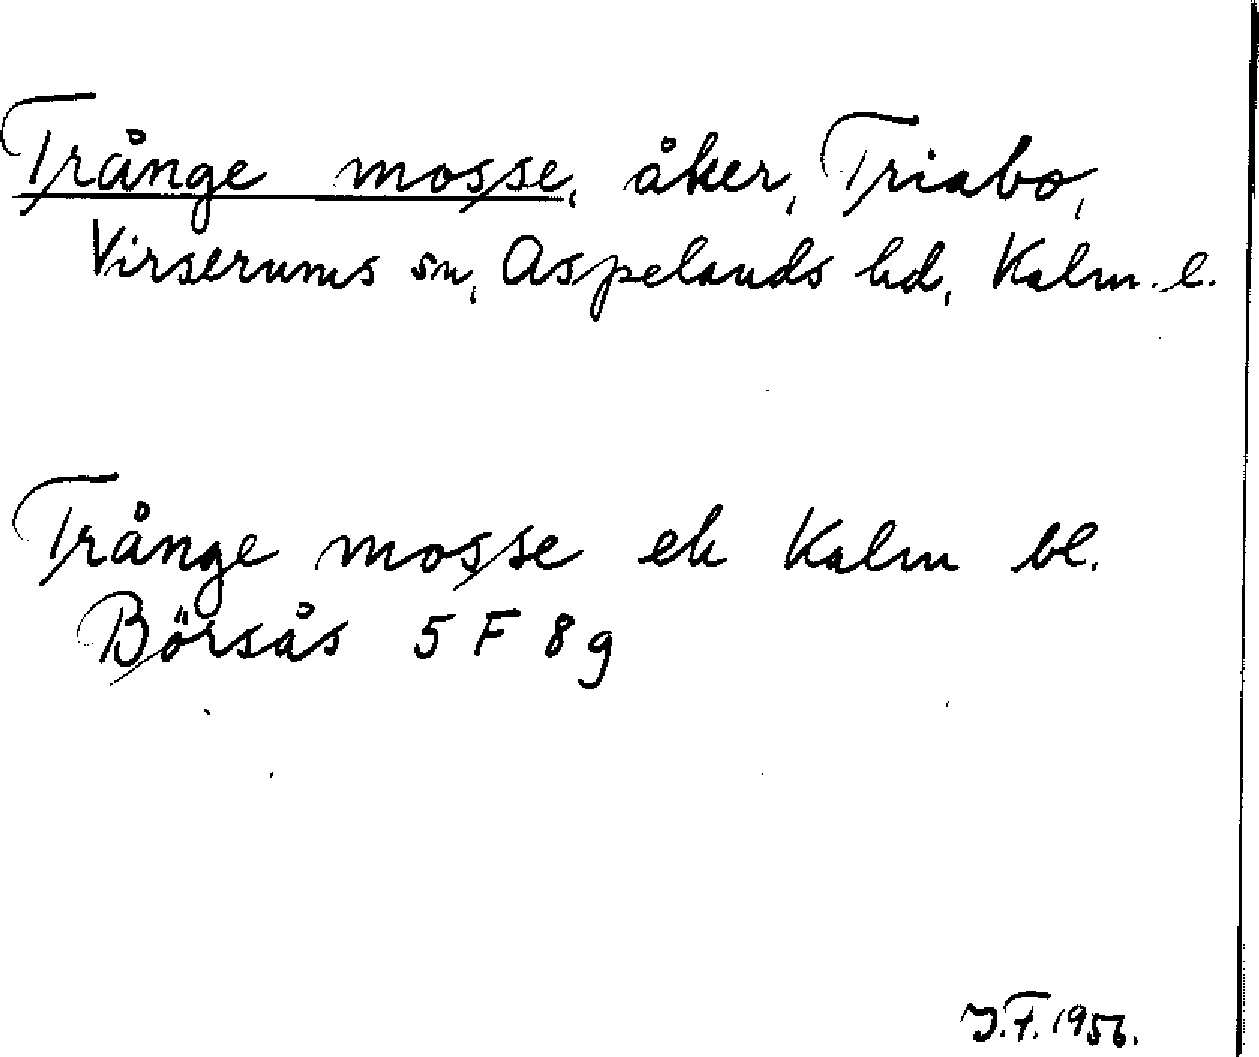 Trånge mosse, åker, Triabo,
Virserums sn, Aspelands hd, Kalm. l.
Trånge mosse ek Kalm bl.
Börsås 5 F 8 g
J.F. 1956.